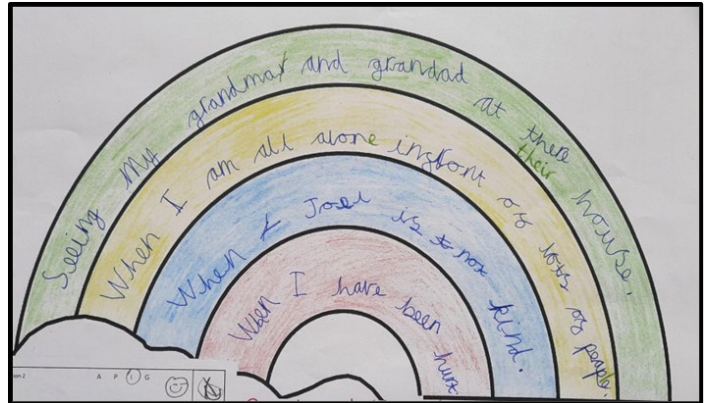 Seeing my grandmar and grandad at there house.
their
When I am all alone infront of lots of people.
When Joel is not kind.
When I have been hurt
A P I G